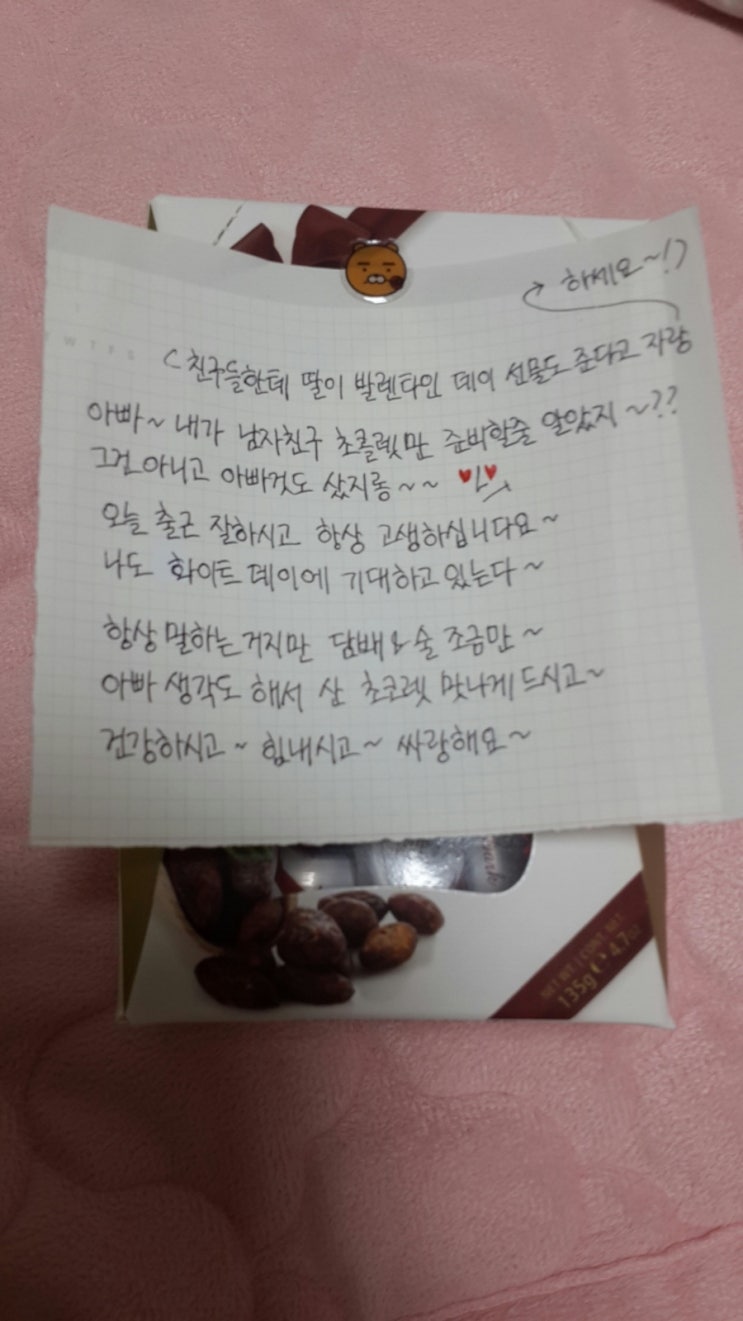 하세요~!>
<친구들한테 딸이 발렌타인 데이 선물도 준다고 자랑
아빠~ 내가 남자친구 초콜렛만 준비할줄 알았지~??
그건아니고 아빠것도 샀지롱~~
오늘 출근 잘하시고 항상 고생하십니다요~
나도 화이트데이에 기대하고 있는다~
항상 말하는거지만 담배&술 조금만~
아빠 생각도 해서 산 초코렛 맛나게드시고~
건강하시고~ 힘내시고~ 싸랑해요~
NET WT. / CONT. NET.
135g 4.7oz